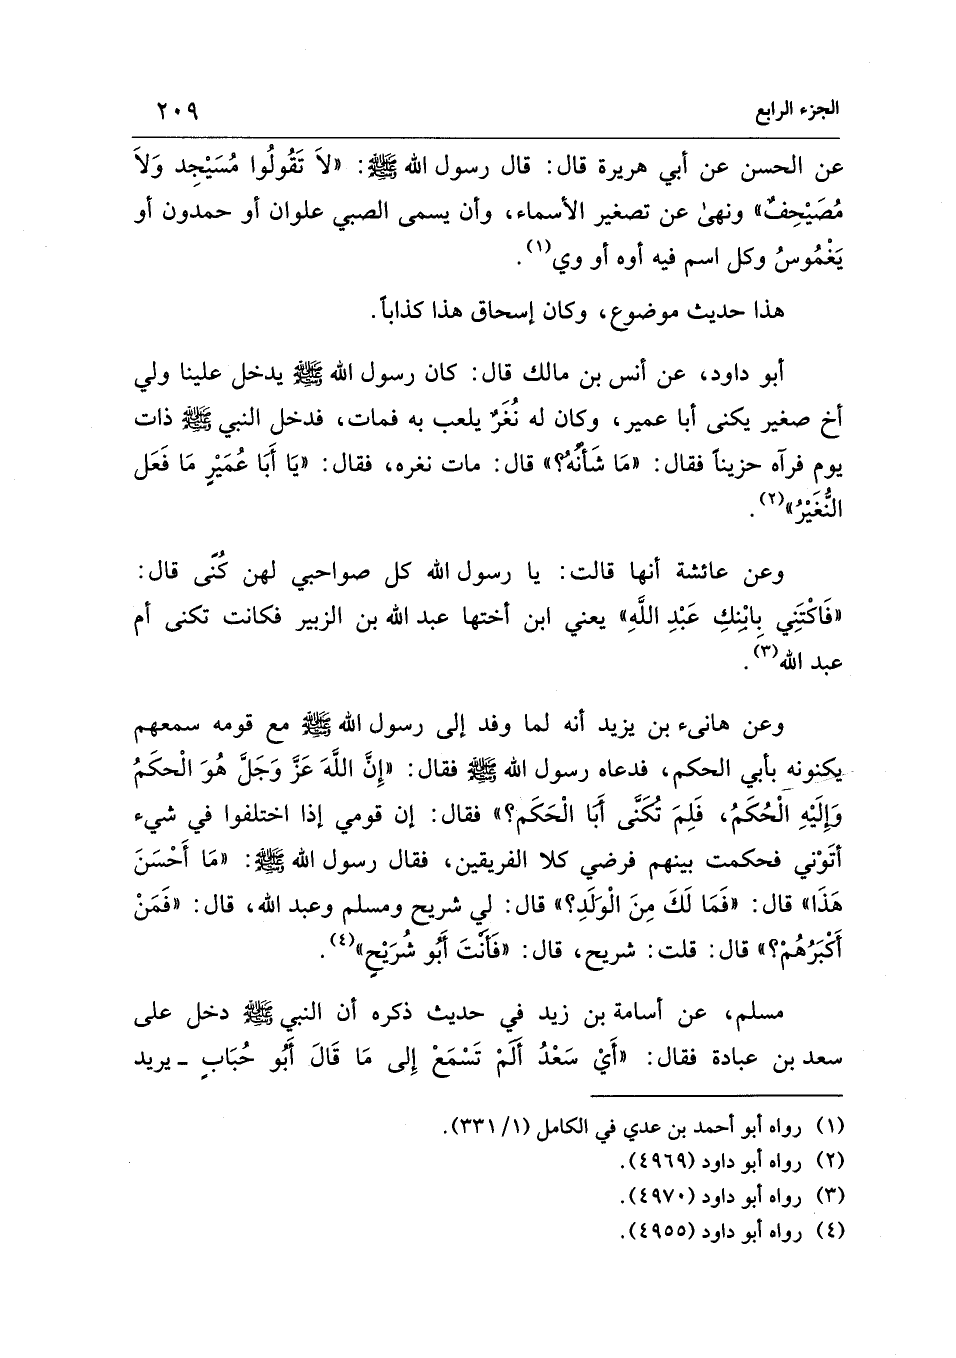 الجزء الرابع ٢٠٩
عن الحسن عن أبي هريرة قال: قال رسول الله ﷺ: «لاَ تَقُولُوا مُسَيْجِد وَلاَ
مُصَيْحِفٌ» ونهىٰ عن تصغير الأسماء، وأن يسمى الصبي علوان أو حمدون أو
يَغْمُوسُ وكل اسم فيه أوه أو وي(١).
هذا حديث موضوع، وكان إسحاق هذا كذاباً.
أبو داود، عن أنس بن مالك قال: كان رسول الله ﷺ يدخل علينا ولي
أخ صغير يكنى أبا عمير، وكان له نُغَرٌ يلعب به فمات، فدخل النبي ﷺ ذات
يوم فرآه حزيناً فقال: «مَا شَأْنُهُ؟» قال: مات نغره، فقال: «يَا أَبَا عُمَيْرٍ مَا فَعَل
النُّغَيْرُ»(٢).
وعن عائشة أنها قالت: يا رسول الله كل صواحبي لهن كُنًى قال:
«فَاكْتَنِي بِابْنِكِ عَبْدِ اللَّهِ» يعني ابن أختها عبد الله بن الزبير فكانت تكنى أم
عبد الله(٣).
وعن هانىء بن يزيد أنه لما وفد إلى رسول الله ﷺ مع قومه سمعهم
يكنونه بأبي الحكم، فدعاه رسول الله ﷺ فقال: «إِنَّ اللَّهَ عَزَّ وَجَلَّ هُوَ الْحَكَمُ
وَإِلَيْهِ الْحُكَمُ، فَلِمَ تُكَنَّى أَبَا الْحَكَم؟» فقال: إن قومي إذا اختلفوا في شيء
أتَوْني فحكمت بينهم فرضي كلا الفريقين، فقال رسول الله ﷺ: «مَا أَحْسَنَ
هَذَا» قال: «فَمَا لَكَ مِنَ الْوَلَدِ؟» قال: لي شريح ومسلم وعبد الله، قال: «فَمَنْ
أَكْبَرُهُمْ؟» قال: قلت: شريح، قال: «فَأَنْتَ أَبُو شُرَيْحٍ»(٤).
مسلم، عن أسامة بن زيد في حديث ذكره أن النبي ﷺ دخل على
سعد بن عبادة فقال: «أَيْ سَعْدُ أَلَمْ تَسْمَعْ إِلى مَا قَالَ أَبُو حُبَابٍ ـ يريد
(١) رواه أبو أحمد بن عدي في الكامل (١/ ٣٣١).
(٢) رواه أبو داود (٤٩٦٩).
(٣) رواه أبو داود (٤٩٧٠).
(٤) رواه أبو داود (٤٩٥٥).